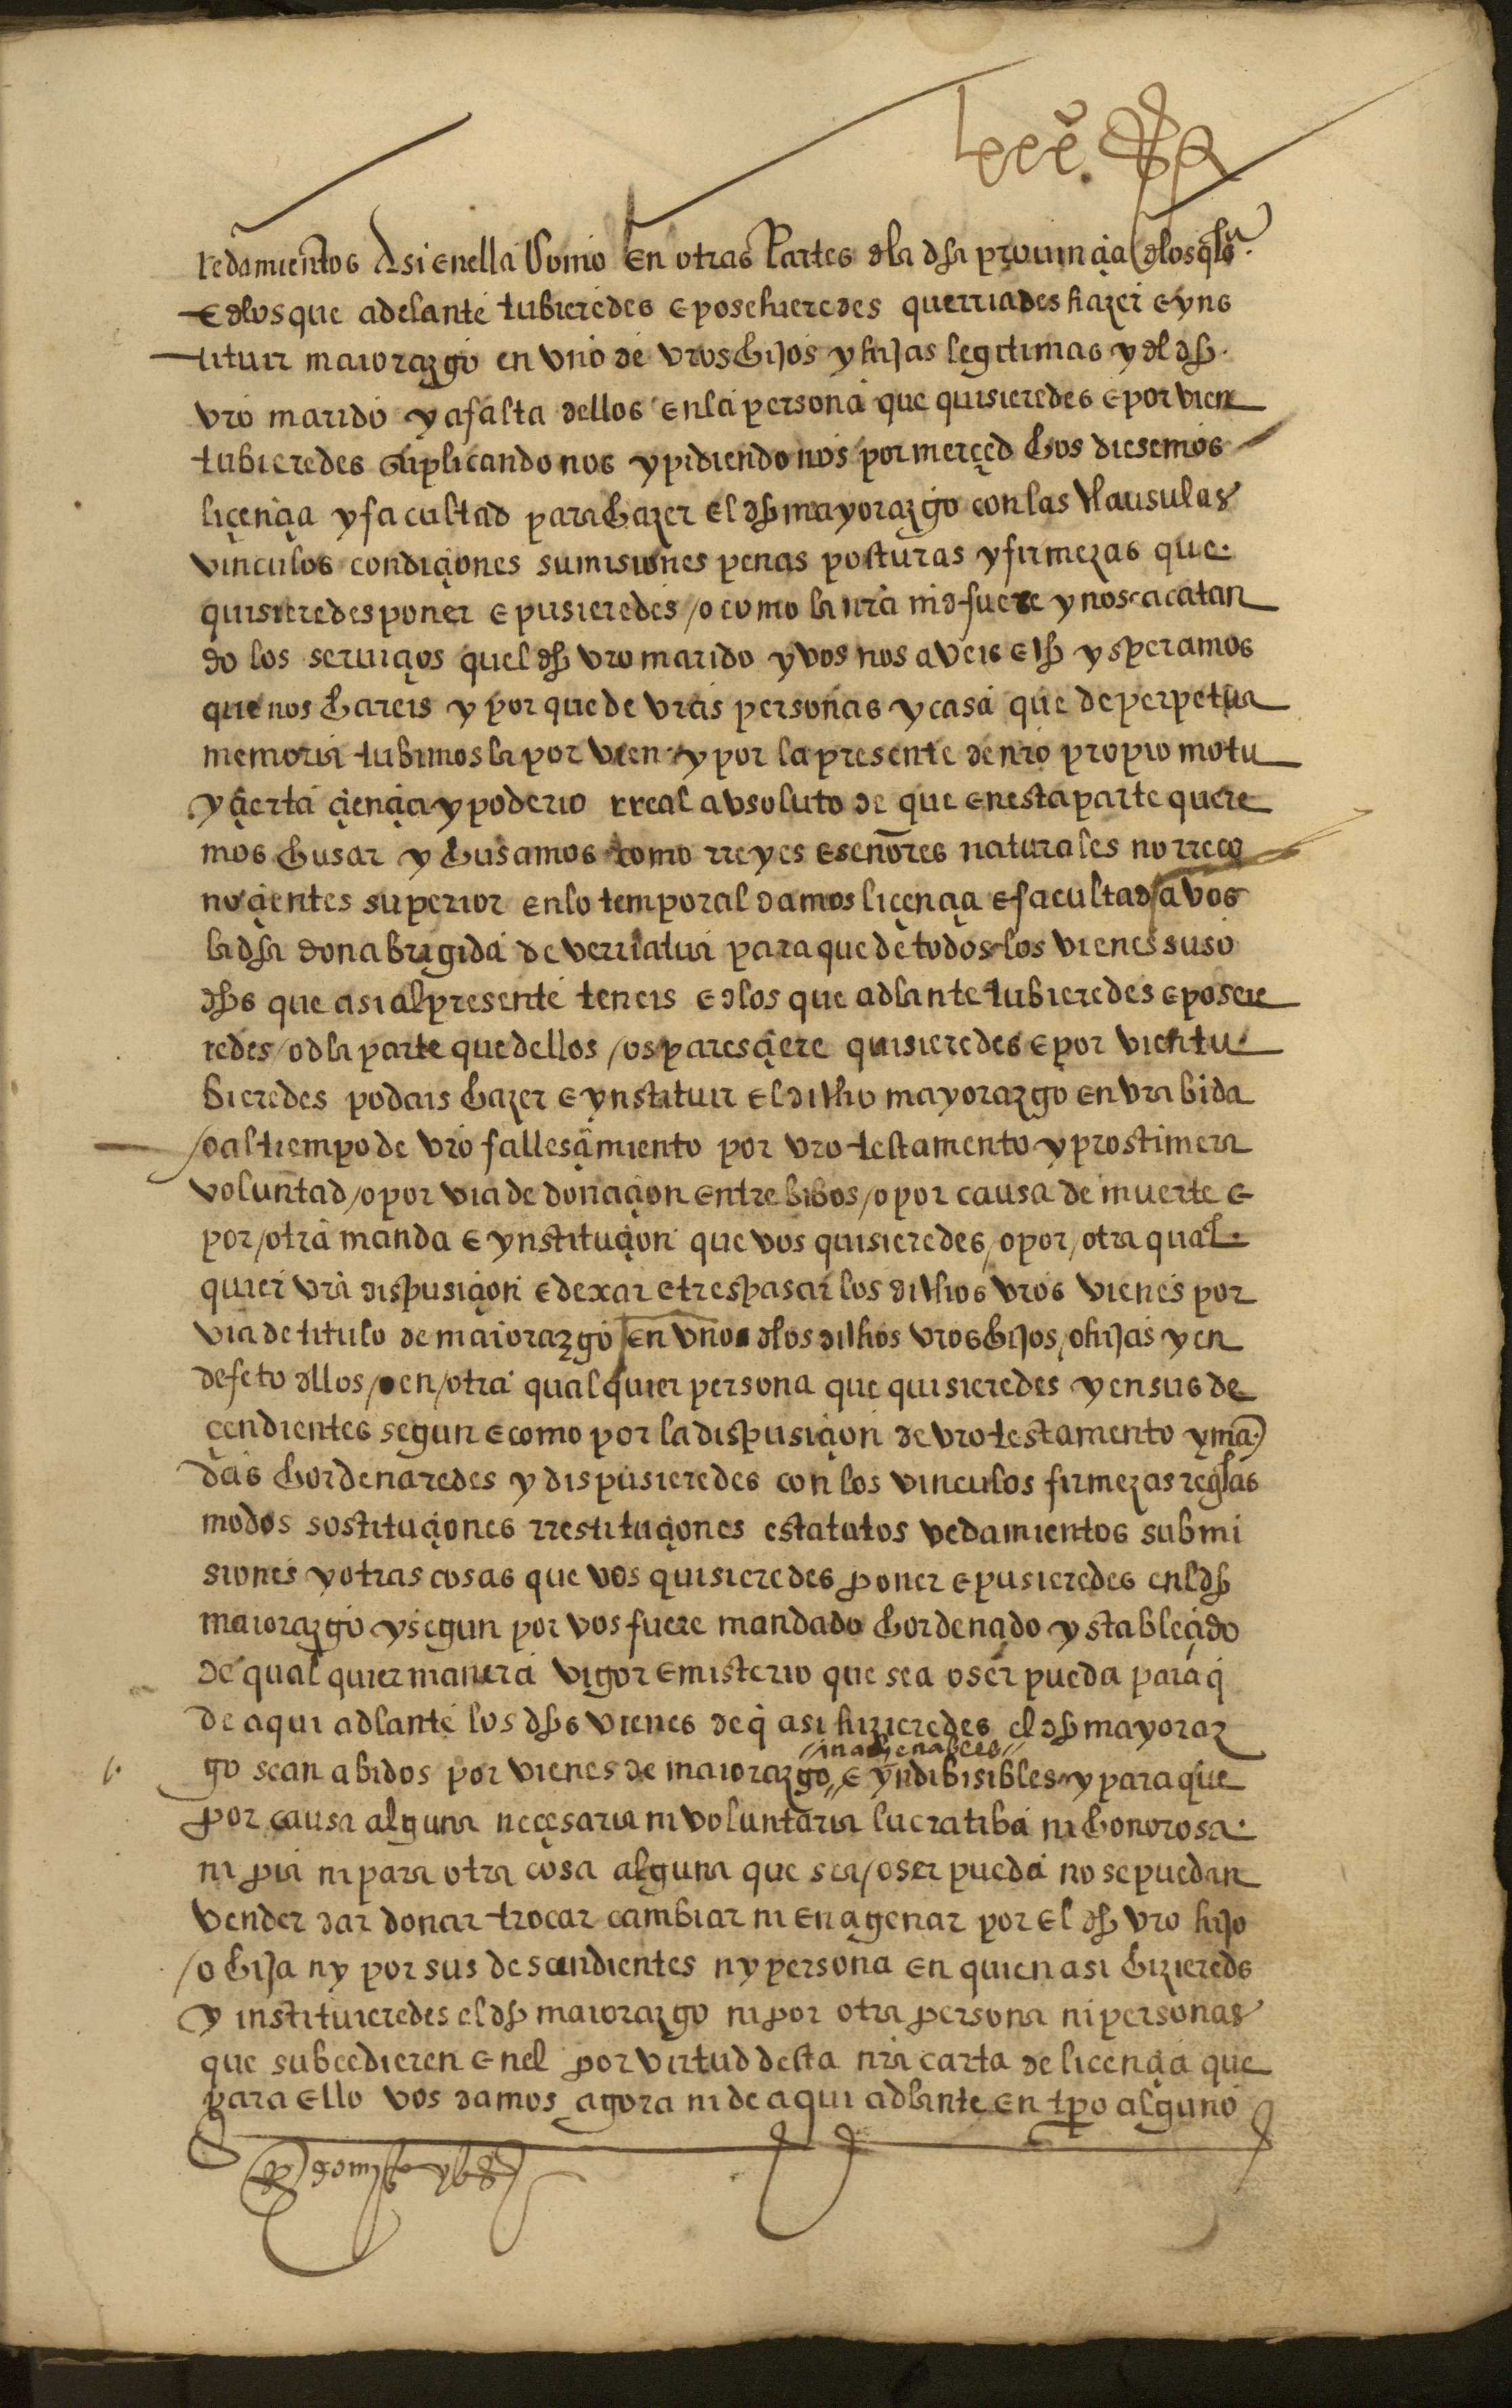 redamientos Asi en ella Como En otras Partes dla dha prouinçia dlos qles
E dlos que adelante tubieredes E posehieredes querriades hazer E yns
tituir maiorazgo en vno de vros hijos y hijas legitimas y dl dho
vro marido y a falta dellos En la persona que quisieredes E por vien
tubieredes suplicando nos y pidiendo nos por merçed hos diesemos
liçençia y facultad para hazer El dho mayorazgo con las Clausulas
vinculos condiçiones sumisiones penas posturas y firmezas que
quisieredes poner E pusieredes / o como la nra md fuere y nos acatan
do los seruiçios quel dho vro marido y vos nos aveis E ho y speramos
que nos hareis y por que de vras personas y casa que de perpetua
memoria tubimos la por vien y por la presente de nro propio motu
y çierta çiençia y poderio rreal avsoluto de que en esta parte quere
mos husar y husamos como rreyes E señores naturales no rreco
noçientes superior en lo temporal damos liçençia E facultad a vos
la dha dona brigida de verriatua para que de todos los vienes suso
dhos que asi al presente teneis E dlos que adlante tubieredes E poseie
redes / o dla parte que dellos / os paresçiere quisieredes E por vien tu
bieredes podais hazer E ynstituir El dicho mayorazgo en vra bida
/ o al tiempo de vro fallesçimiento por vro testamento y prostimera
voluntad / o por via de donaçion Entre bibos / o por causa de muerte E
por / otra manda E ynstituçion que vos quisieredes / o por / otra qual
quier vra dispusiçion E dexar e trespasar los dichos vros vienes por
via de titulo de maiorazgo en vno dlos dichos vros hijos / o hijas y en
defeto dllos / o en / otra qualquier persona que quisieredes y en sus de
çendientes segun E como por la dispusiçion de vro testamento y mā
das hordenaredes y dispusieredes con los vinculos firmezas reglas
modos sostituçiones rrestituçiones estatutos vedamientos submi
siones y otras cosas que vos quisieredes poner E pusieredes enl dho
maiorazgo y segun por vos fuere mandado hordenado y stableçido
de qual quier manera vigor E misterio que sea o ser pueda para q̄
de aqui adlante los dhos vienes de q̄ asi hizieredes el dho mayoraz
// inagenables //
go sean abidos por vienes de maiorazgo // E yndibisibles y para que
por causa alguna neçesaria ni voluntaria lucratiba ni honorosa
ni pia ni para otra cosa alguna que sea / o ser pueda no se puedan
vender dar donar trocar cambiar ni enagenar por El dho vro hijo
/ o hija ny por sus desçendientes ny persona En quien asi hizieredes
y instituieredes el dho maiorazgo ni por otra persona ni personas
que subcedieren En el por virtud desta nra carta de licençia que
para Ello vos damos agora ni de aqui adlante En tpo alguno